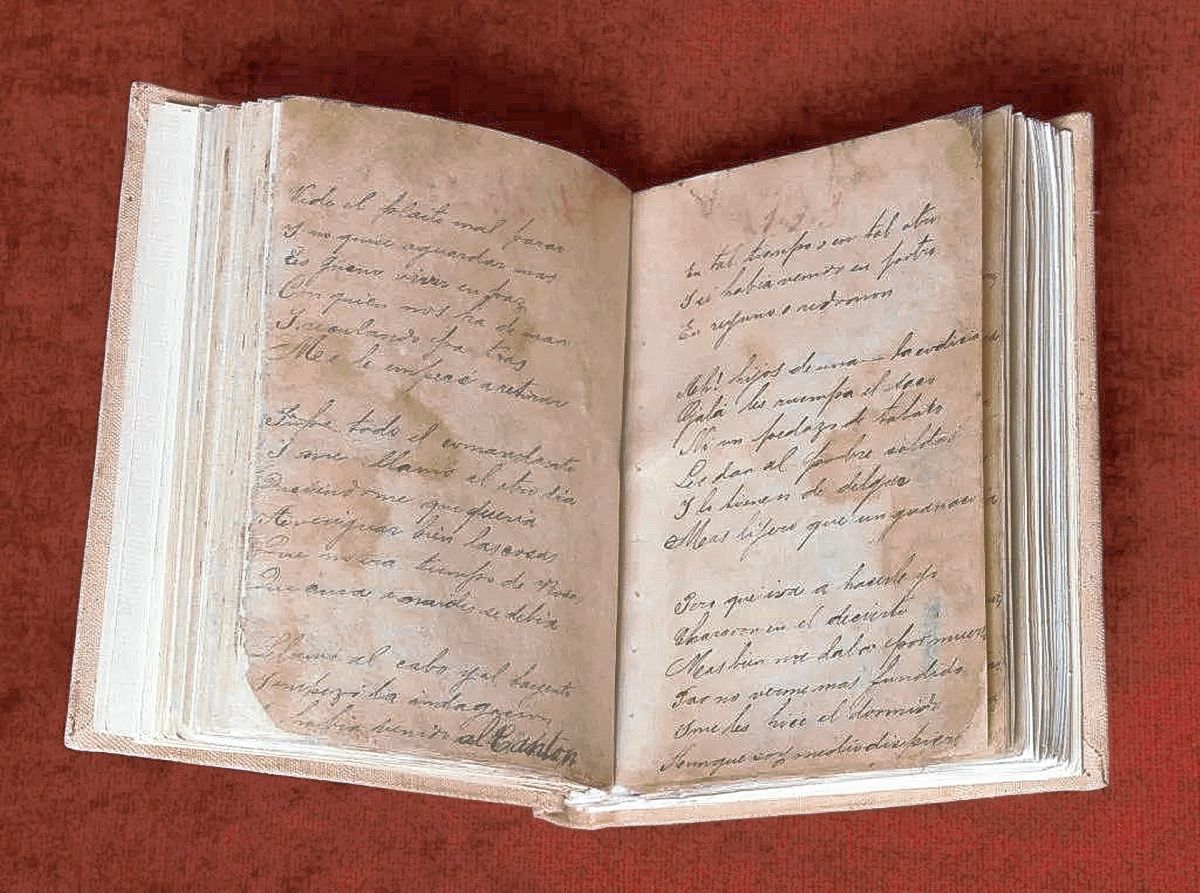 Vide el pleito mal parar
I no quise aguardar mas
Es gueno vivir en paz
Con quien nos ha de man
I reculando pa tras
Me le empecé a retirar
Supo todo el comandante
I me llamó al otro dia
Diciendome que queria
Averiguar bien las cosas
Que no era tiempo de Rosas
Que aura a naides se debia
Llamo al cabo y al sargento
I empezó la indagacion
habia venido al Canton
En tal tiempo o en tal otro
I si habia venido en potro
En reyuno o redomon
Ah! hijos de una — la codicia
Ojalá les ruempa el saco
Ni un pedazo de tabaco
Les dan al pobre soldao
I lo tienen de delgao
Mas lijero que un guanaco
Pero que iva a hacerle yo
Charavon en el decierto
Mas bien me daba por muerto
Pa no verme mas fundido
I me les hice el dormido
Aunque soy medio dispierto